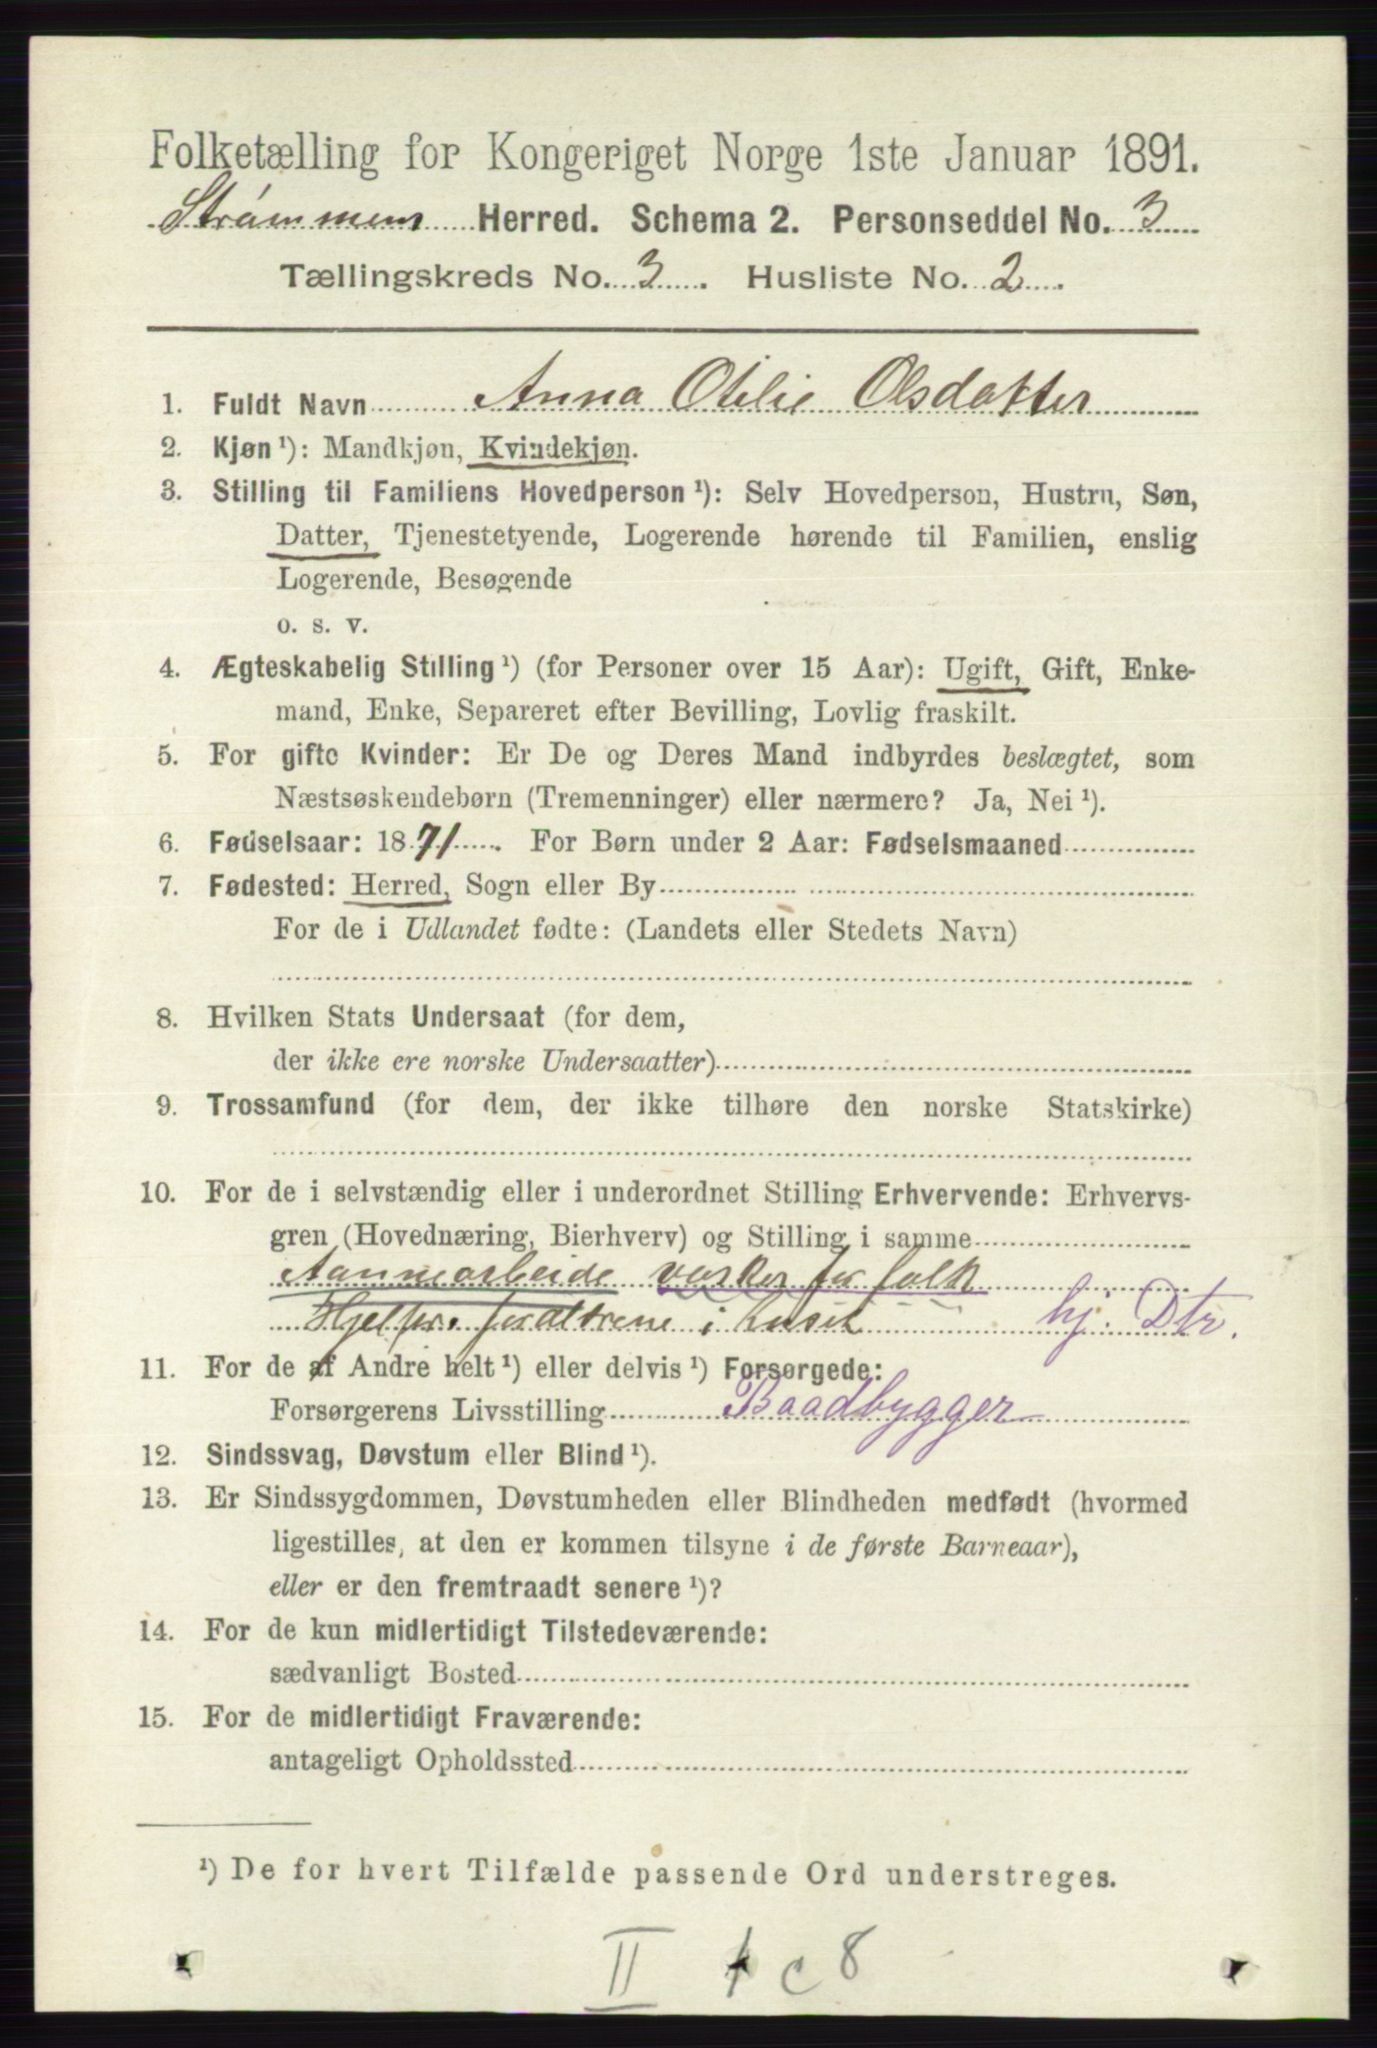 Folketælling for Kongeriget Norge 1ste Januar 1891.
Strømmens Herred. Schema 2. Personseddel No. 3
Tællingskreds No. 3. Husliste No. 2.
1. Fuldt Navn Anna Otilie Olsdatter
2. Kjøn ¹): Mandkjøn, Kvindekjøn.
3. Stilling til Familiens Hovedperson ¹): Selv Hovedperson, Hustru, Søn,
Datter, Tjenestetyende, Logerende hørende til Familien, enslig
Logerende, Besøgende
o. s. v.
4. Ægteskabelig Stilling ¹) (for Personer over 15 Aar): Ugift, Gift, Enke-
mand, Enke, Separeret efter Bevilling, Lovlig fraskilt.
5. For gifte Kvinder: Er De og Deres Mand indbyrdes beslægtet, som
Næstsøskendebørn (Tremenninger) eller nærmere? Ja, Nei ¹).
6. Fødselsaar: 1871. For Børn under 2 Aar: Fødselsmaaned
7. Fødested: Herred, Sogn eller By
For de i Udlandet fødte: (Landets eller Stedets Navn)
8. Hvilken Stats Undersaat (for dem,
der ikke ere norske Undersaatter)
9. Trossamfund (for dem, der ikke tilhøre den norske Statskirke)
10. For de i selvstændig eller i underordnet Stilling Erhvervende: Erhvervs-
gren (Hovednæring, Bierhverv) og Stilling i samme
vasker for folk
Hjelper foreldrene i huset hj. Dtr.
11. For de af Andre helt ¹) eller delvis ¹) Forsørgede:
Forsørgerens Livsstilling Baadbygger
12. Sindssvag, Døvstum eller Blind ¹).
13. Er Sindssygdommen, Døvstumheden eller Blindheden medfødt (hvormed
ligestilles, at den er kommen tilsyne i de første Barneaar),
eller er den fremtraadt senere ¹)?
14. For de kun midlertidigt Tilstedeværende:
sædvanligt Bosted
15. For de midlertidigt Fraværende:
antageligt Opholdssted
¹) De for hvert Tilfælde passende Ord understreges.
II c 8